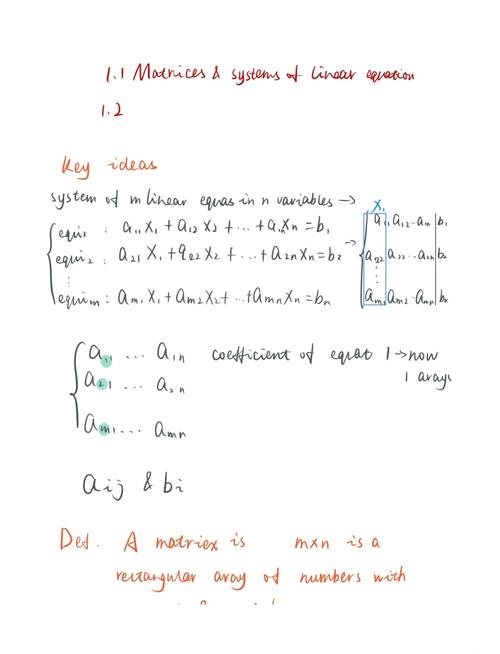 1.1 Matrices & systems of linear equation
1.2
Key ideas
system of m linear equas in n variables →
equi1 : a11 x1 + a12 x2 + ... + a1n xn = b1 →
equi2 : a21 x1 + a22 x2 + ... + a2n xn = b2
⋮
equim : am1 x1 + am2 x2 + ... + amn xn = bn
x1
a11 a12 ... a1n | b1
a22 ... a2n | b2
⋮
am1 am2 ... amn | bn
a11 ... a1n coefficient of equat 1 → now
1 arays
a21 ... a2n
am1 ... amn
aij & bi
Def. A matriex is m×n is a
rectangular array of numbers with